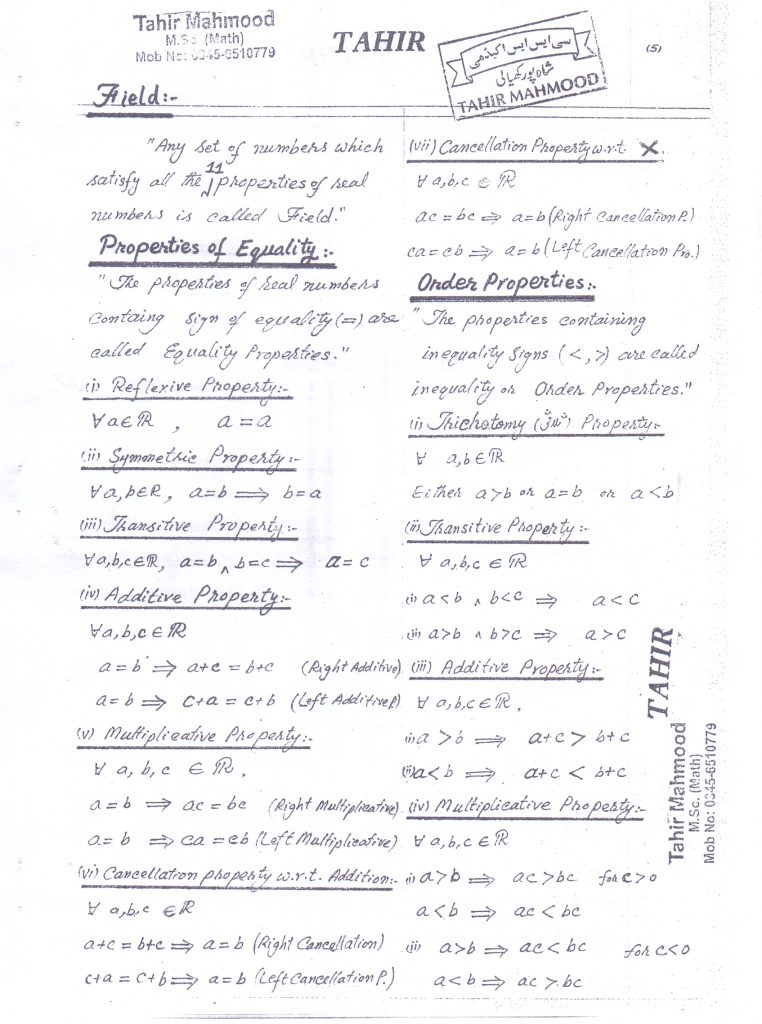 Tahir Mahmood
M.Sc. (Math)
Mob No: 0345-6510779
TAHIR
سی ایس ایس اکیڈمی
شاہ پور کھیالی
TAHIR MAHMOOD
(5)
Field:-
"Any set of numbers which
satisfy all the 11 properties of real
numbers is called Field."
Properties of Equality:-
"The properties of real numbers
Containg Sign of equality (=) are
called Equality Properties."
(i) Reflexive Property:-
∀ a∈ℝ , a = a
(ii) Symmetric Property:-
∀ a,b∈R, a=b ⟹ b=a
(iii) Transitive Property:-
∀ a,b,c∈ℝ, a=b ∧ b=c ⟹ a=c
(iv) Additive Property:-
∀ a,b,c ∈ ℝ
a=b ⟹ a+c = b+c (Right Additive)
a=b ⟹ c+a = c+b (Left Additive P.)
(v) Multiplicative Property:-
∀ a, b, c ∈ ℝ,
a=b ⟹ ac = bc (Right Multiplicative)
a=b ⟹ ca = cb (Left Multiplicative)
(vi) Cancellation property w.r.t. Addition:-
∀ a,b,c ∈ ℝ
a+c = b+c ⟹ a=b (Right Cancellation)
c+a = c+b ⟹ a=b (Left Cancellation P.)
(vii) Cancellation Property w.r.t. ×.
∀ a,b,c ∈ ℝ
ac = bc ⟹ a=b (Right Cancellation P.)
ca = cb ⟹ a=b (Left Cancellation Pro.)
Order Properties:-
"The properties containing
inequality signs (<,>) are called
inequality or Order Properties."
(i) Trichotomy (ثلاثی) Property:-
∀ a,b∈ℝ
Either a>b or a=b or a<b
(ii) Transitive Property:-
∀ a,b,c ∈ ℝ
(i) a<b ∧ b<c ⟹ a<c
(ii) a>b ∧ b>c ⟹ a>c
(iii) Additive Property:-
∀ a,b,c ∈ ℝ,
(i) a>b ⟹ a+c > b+c
(ii) a<b ⟹ a+c < b+c
(iv) Multiplicative Property:-
∀ a,b,c ∈ ℝ
(i) a>b ⟹ ac>bc for c>0
a<b ⟹ ac<bc
(ii) a>b ⟹ ac<bc for c<0
a<b ⟹ ac>bc
TAHIR
Tahir Mahmood
M.Sc. (Math)
Mob No: 0345-6510779